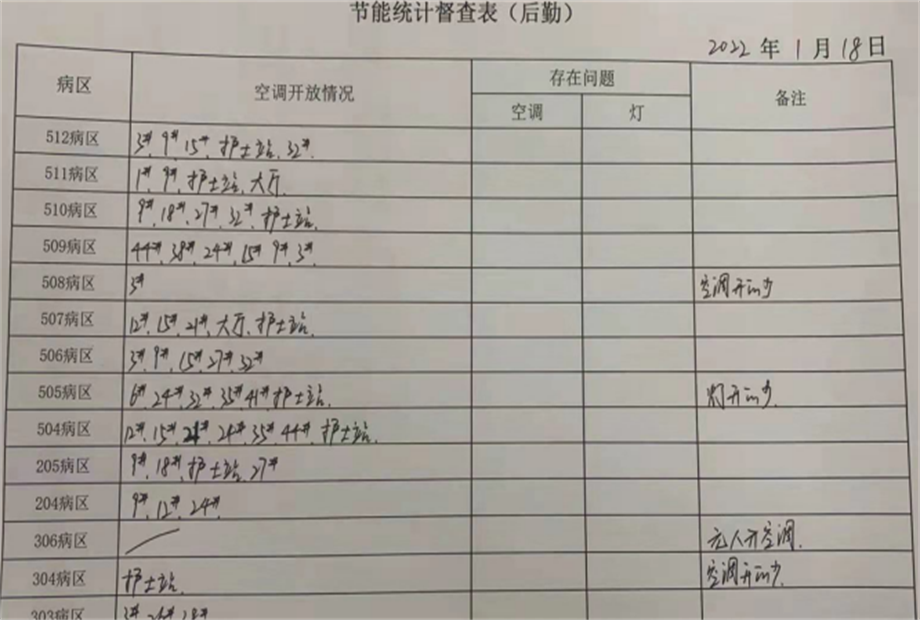 节能统计督查表（后勤）
2022 年 1 月 18 日
病区 空调开放情况 存在问题 备注
空调 灯
512病区 3#、9#、15#、护士站、32#.
511病区 1#、9#、护士站、大厅.
510病区 9#、18#、27#、32#、护士站
509病区 44#、38#、24#、15#、9#、3#.
508病区 3# 空调开的少
507病区 12#、15#、21#、大厅、护士站.
506病区 3#、9#、15#、27#、32#
505病区 6#、24#、32#、35#、41#、护士站. 灯开的少.
504病区 12#、15#、21#、24#、35#、44#、护士站.
205病区 9#、18#、护士站、27#
204病区 9#、12#、24#.
306病区 无人开空调.
304病区 护士站. 空调开的少.
303病区